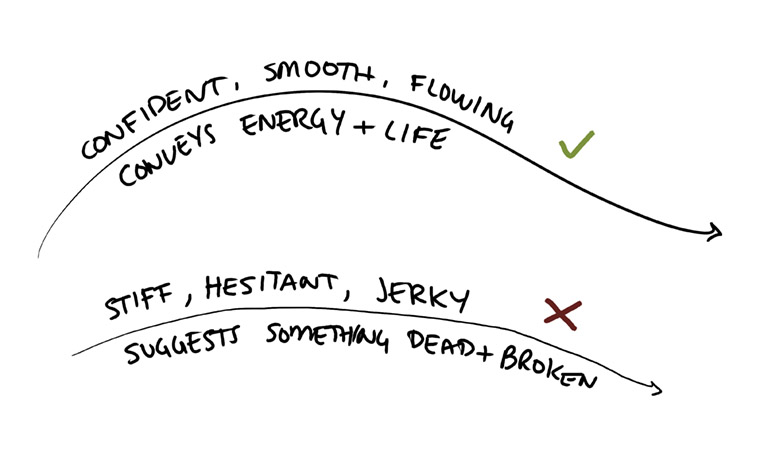 CONFIDENT, SMOOTH, FLOWING
CONVEYS ENERGY + LIFE
STIFF, HESITANT, JERKY
SUGGESTS SOMETHING DEAD + BROKEN